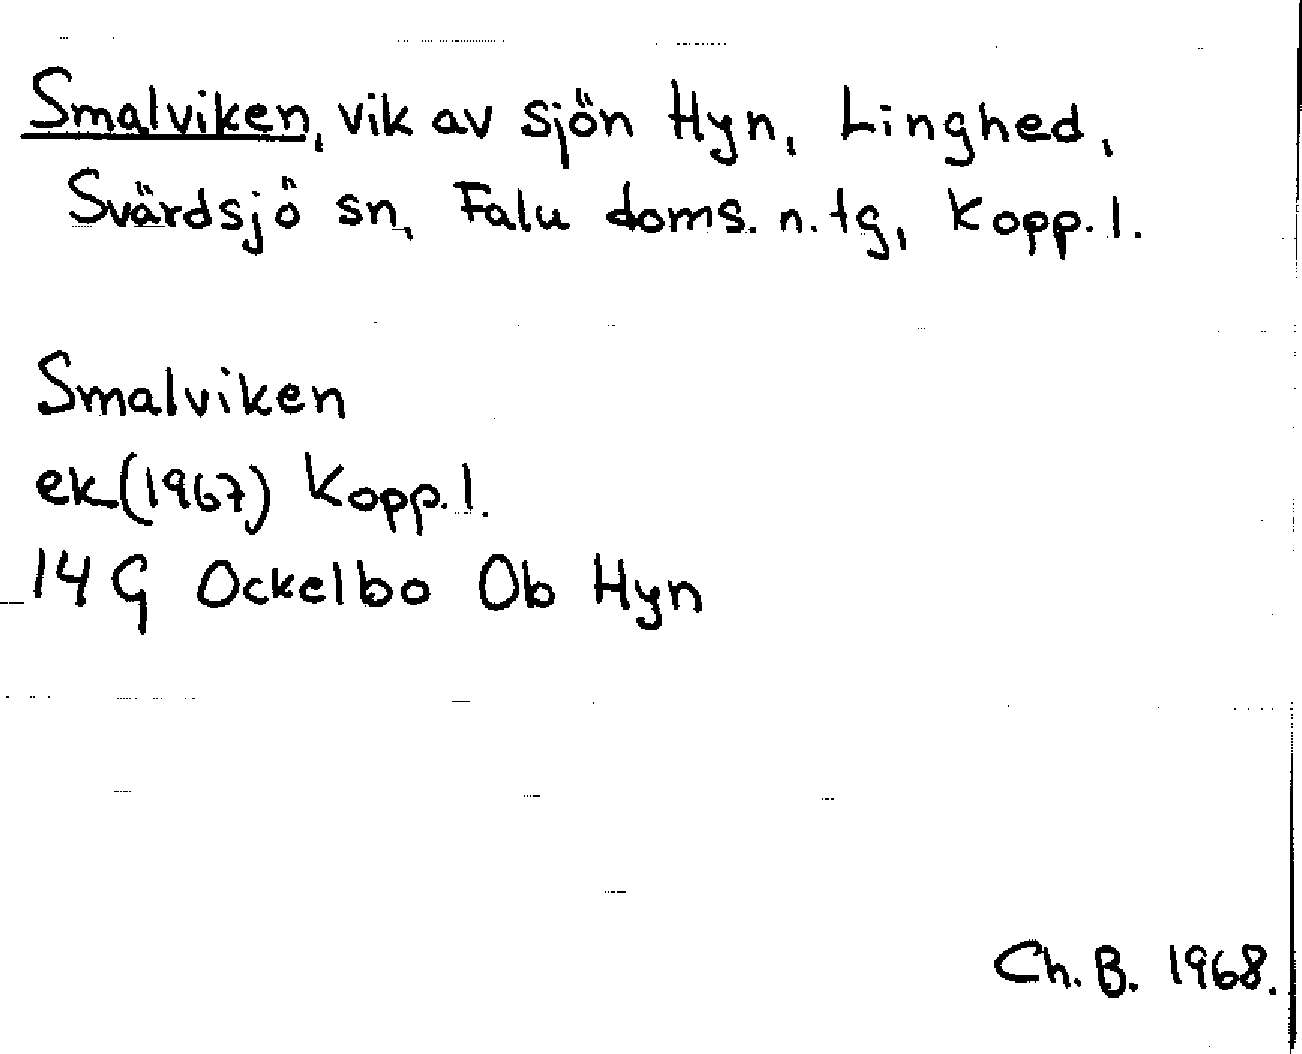 Smalviken, vik av sjön Hyn, Linghed,
Svärdsjö sn, Falu doms. n. tg, Kopp. l.
Smalviken
ek (1967) Kopp. l.
14 G Ockelbo Ob Hyn
Ch. B. 1968.